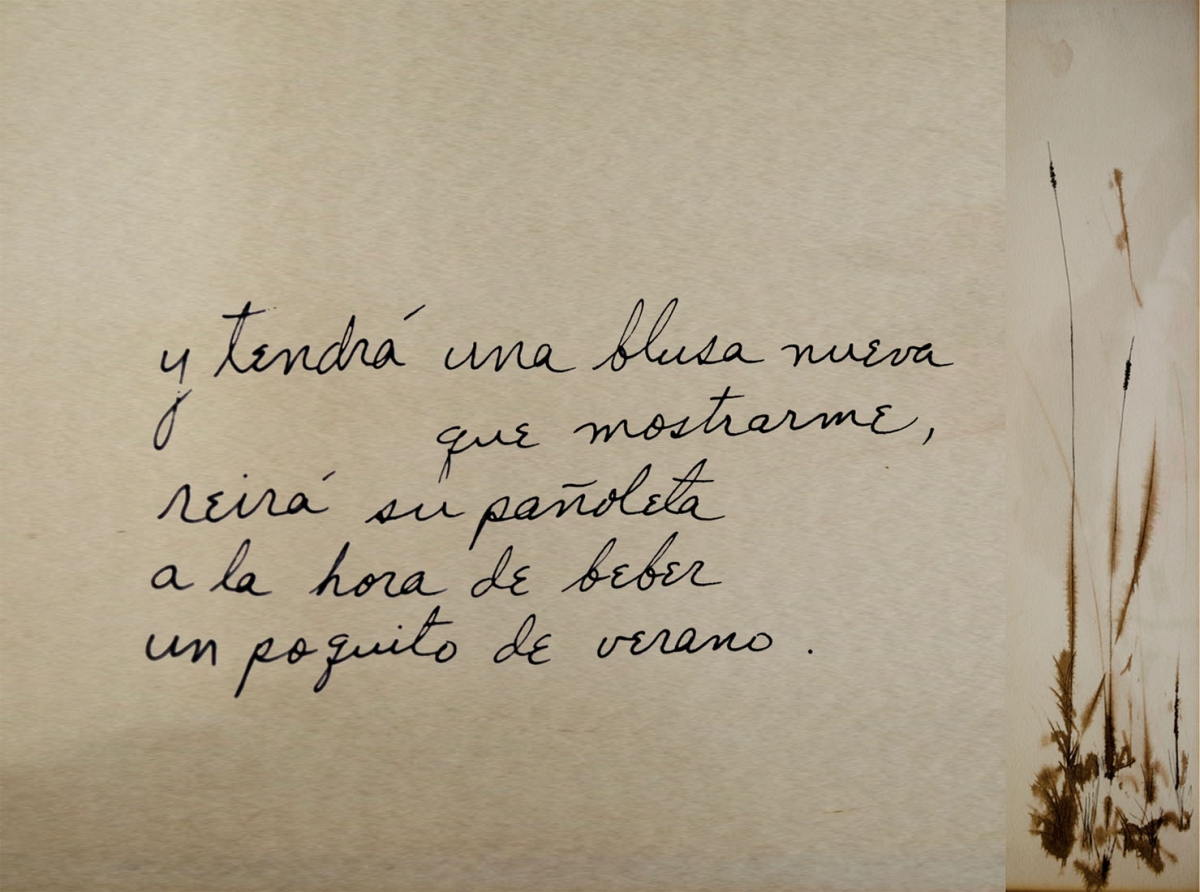 y tendrá una blusa nueva
que mostrarme,
reirá su pañoleta
a la hora de beber
un poquito de verano.